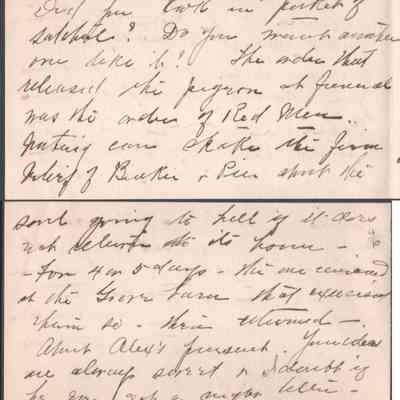 Did you look in pocket of
satchel? Do you want another
one like it? The order that
released the pigeon at funeral
was the order of Red Men.
Nothing can shake the firm
belief of Beaker & Pien about the
soul going to hell if it does
not return to its home -
- for 4 or 5 days - the one
at the Grove barn that
them so - then returned -
About Alex's present. Your ideas
are always sweet & I doubt if
he